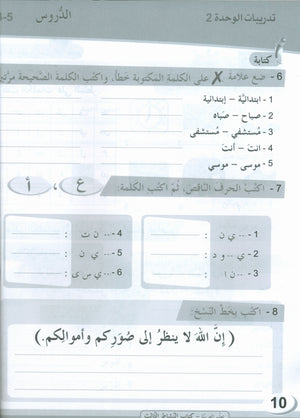 تدريبات الوحدة 2
الدُّروس 5-
كتابة
6 - ضع علامة ✗ على الكلمة المكتوبة خطأ، واكتُب الكلمة الصَّحيحة مرَّتين
1 - ابتدائيَّة – إبتدائية
2 - صباح – صَباه
3 - مُستشفي – مُستشفى
4 - انت – أنتَ
5 - موسى – موسي
7 - اكتُب الحرفَ النَّاقصَ، ثُمَّ اكتُب الكلمةَ:
ع ، أ
1 - .. ي ن :
2 - ي .. و د :
3 - .. ن ا :
4 - .. ن ت :
5 - .. ي ن :
6 - .. ي س ى :
8 - اكتُب بخَطِّ النَّسْخ:
( إنَّ اللهَ لا ينظرُ إلى صُوَرِكم وأموالِكم. )
10